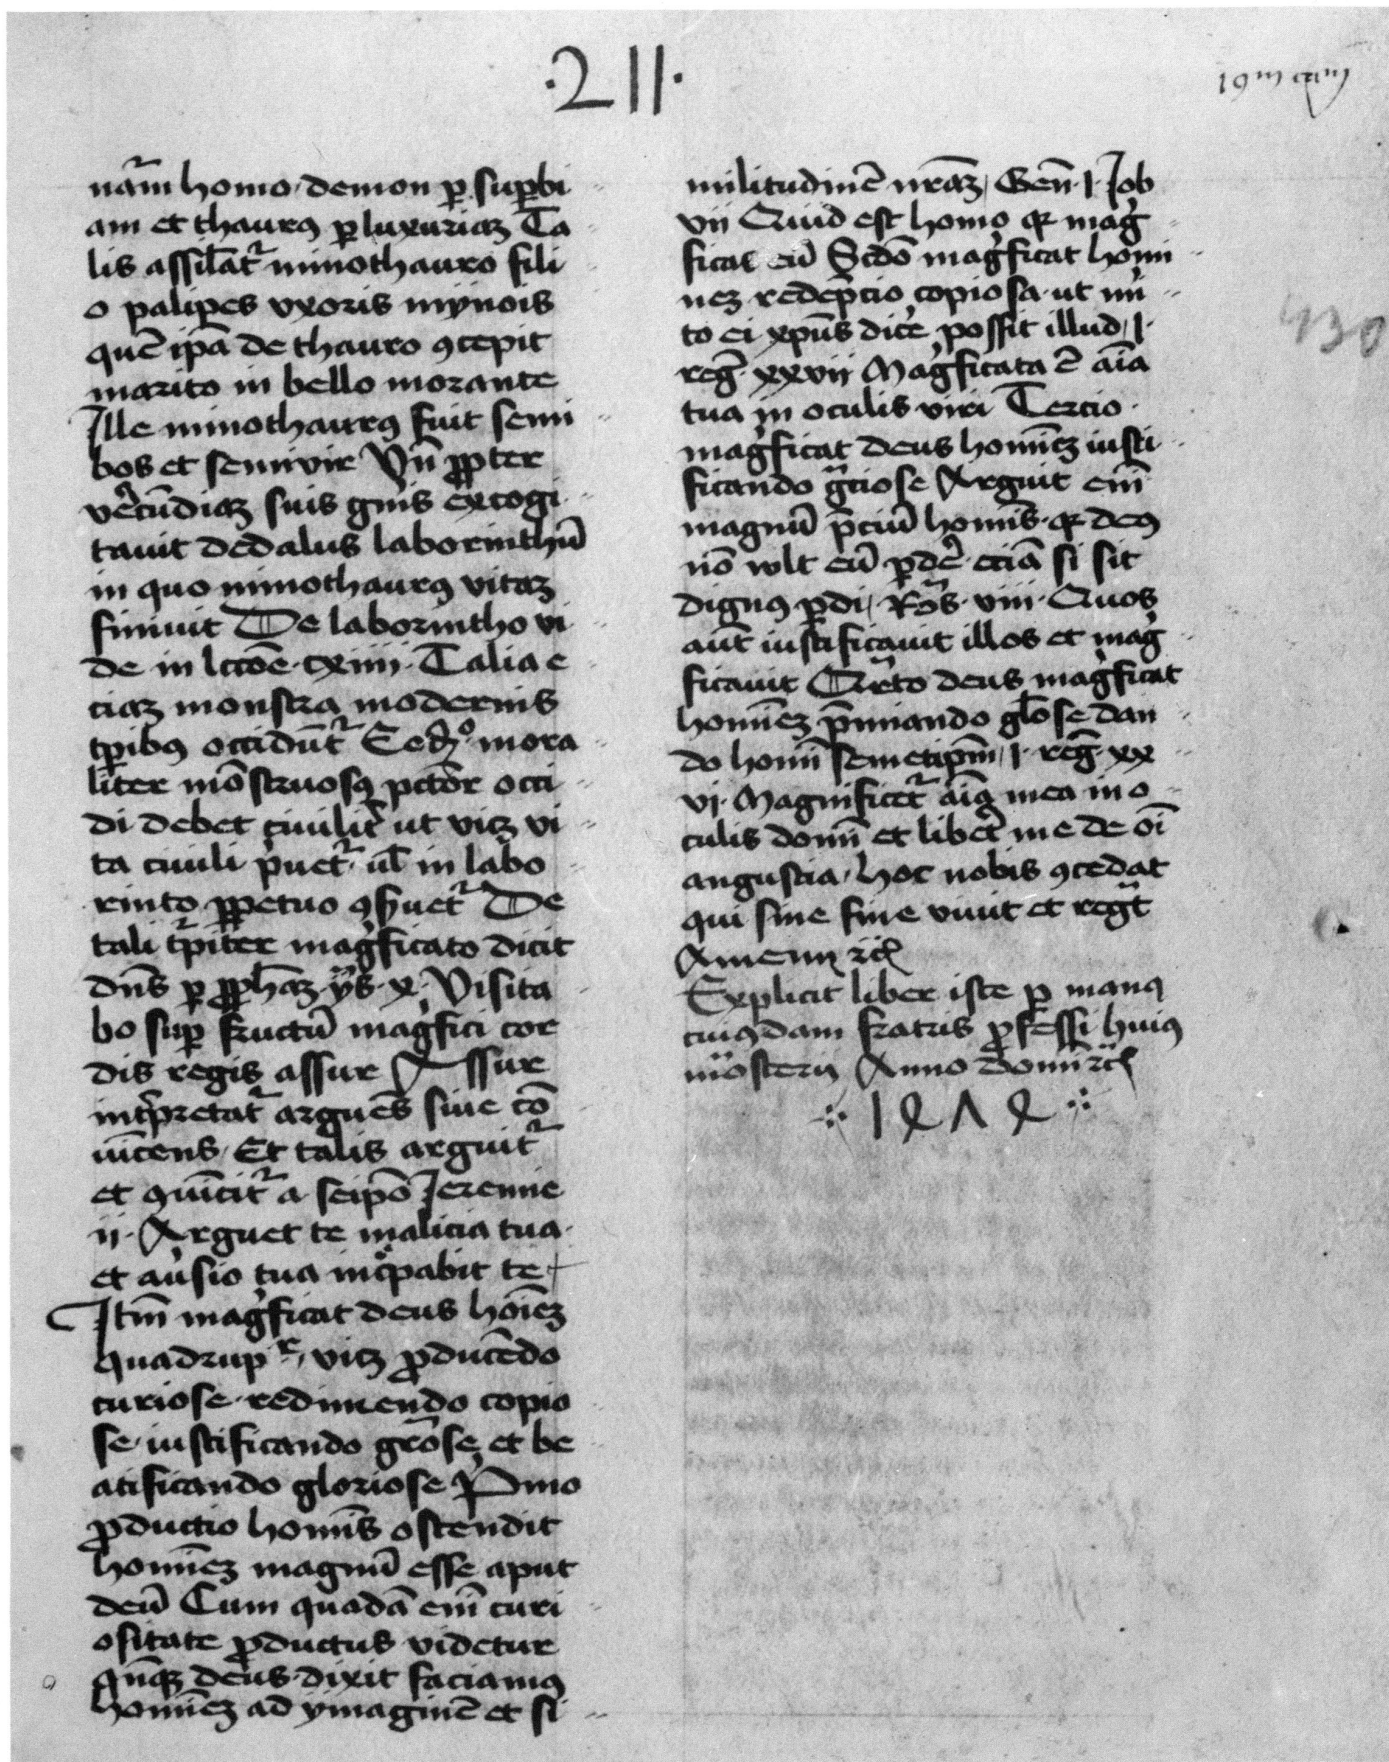 ·211·
19m
naꝛm homo demon ꝑ suꝑbi
am et thaurꝯ ꝑ luxuriaꝫ Ta
lis assilatᷣ minothauro fili
o palipes vxoris mynois
quē ip̄a de thauro ꝯcepit
marito in bello morante
Ille minothaurꝯ fuit semi
bos et semivir Vn̄ ꝓpter
ve̓cūdiaꝫ suis gnis excogi
tauit dedalus laborinthū
in quo minothaurꝯ vitaꝫ
finiuit De laborintho vi
de in lcc̄oe cxiiii Talia e
ciaꝫ monstra modernis
tꝑibꝯ occidūtᷣ Sedꝫ mora
liter mōstruosꝯ pctōr occi
di debet ciuilit̓ ut vitꝫ vi
ta ciuili p̓uetᷣ ul̄ in labo
rinto ꝑpetuo ꝯsꝑuetᷣ De
tali tᷣpiter mag̓ficato dicit
dn̄s ꝑ ꝓph̄aꝫ ys. x. Visita
bo suꝑ fructū mag̓fici cor
dis regis assur Assur
int̓pretatᷣ arguēs siue cō
uīcens Et talis arguitᷣ
et ꝯuīcitᷣ a seip̄o Jeremie
ij. Arguet te malicia tua
et au̓sio tua īc̓pabit te
Itm̄ mag̓ficat deus hoīeꝫ
quadrupᷣr vitꝫ ꝓducēdo
curiose redimendo copio
se iustificando grōse et be
atificando gloriose P̓mo
ꝓductio homīs ostendit
homīeꝫ magnū esse aput
deū Cum quadā enī curi
ositate ꝓductus videtur
qn̄qꝫ deus dixit faciamꝯ
homīeꝫ ad ymaginē et si
militudinē nr̄aꝫ Gen̄. I. Job
vii Quid est homo qꝛ mag̓
ficas eū Scdō mag̓ficat homi
neꝫ redēpcio copiosa ut m̓i
to ei xp̄us dic̓e possit illud I.
reg̓. xxvii Mag̓ficata ē aīa
tua in oculis viri Tercio
mag̓ficat deus homīeꝫ iusti
ficando gᷓciose Arguit enī
magnū p̄ciū homīs qꝛ deꝯ
nō wlt eū ꝑde̓ eciā si sit
dignꝯ ꝑdi Ro̓s. viii. Quos
aūt iustificauit illos et mag̓
ficauit Quᷣto deus mag̓ficat
homīeꝫ p̄miando glōse dan
do homī semetip̄m I. reg̓. xx
vi. Magnificetᷣ aīa mea in o
culis domī et libet̓ me de oī
angustia hoc nobis ꝯcedat
qui sine fine viuit et regᷓt
Amenn ꝛcꝭ
Explicit liber iste ꝑ manꝯ
cuiꝯdam fratris ꝓfessi huiꝯ
mōsterij Anno domī ꝛcꝭ
1ꝭ4ꝭ7ꝭ4
430